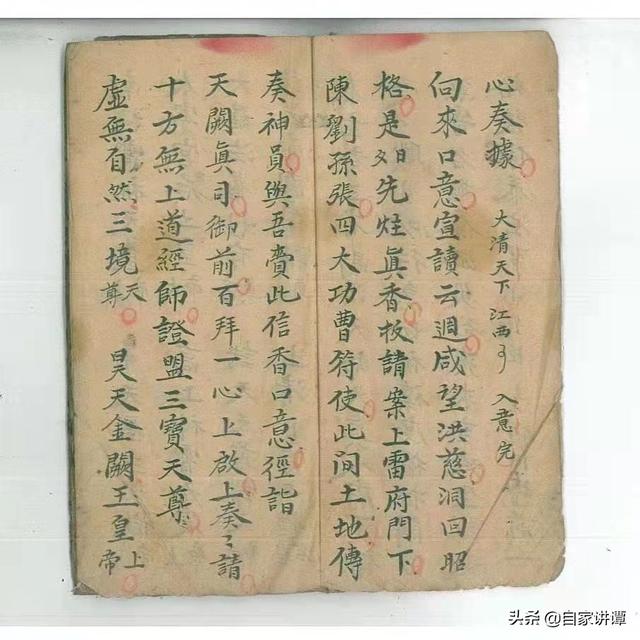 心奏據 大清天下 江西 入意完
向來口意宣讀云週咸望洪慈洞回昭
格是夕日先炷眞香扳請案上雷府門下
陳劉孫張四大功曹符使此间土地傳
奏神員與吾賫此信香口意徑詣
天闕眞司御前百拜一心上啟上奏〻請
十方無上道經師證盟三寶天尊
虛無自然三境天尊 昊天金闕玉皇上帝
头条 @自家讲谭